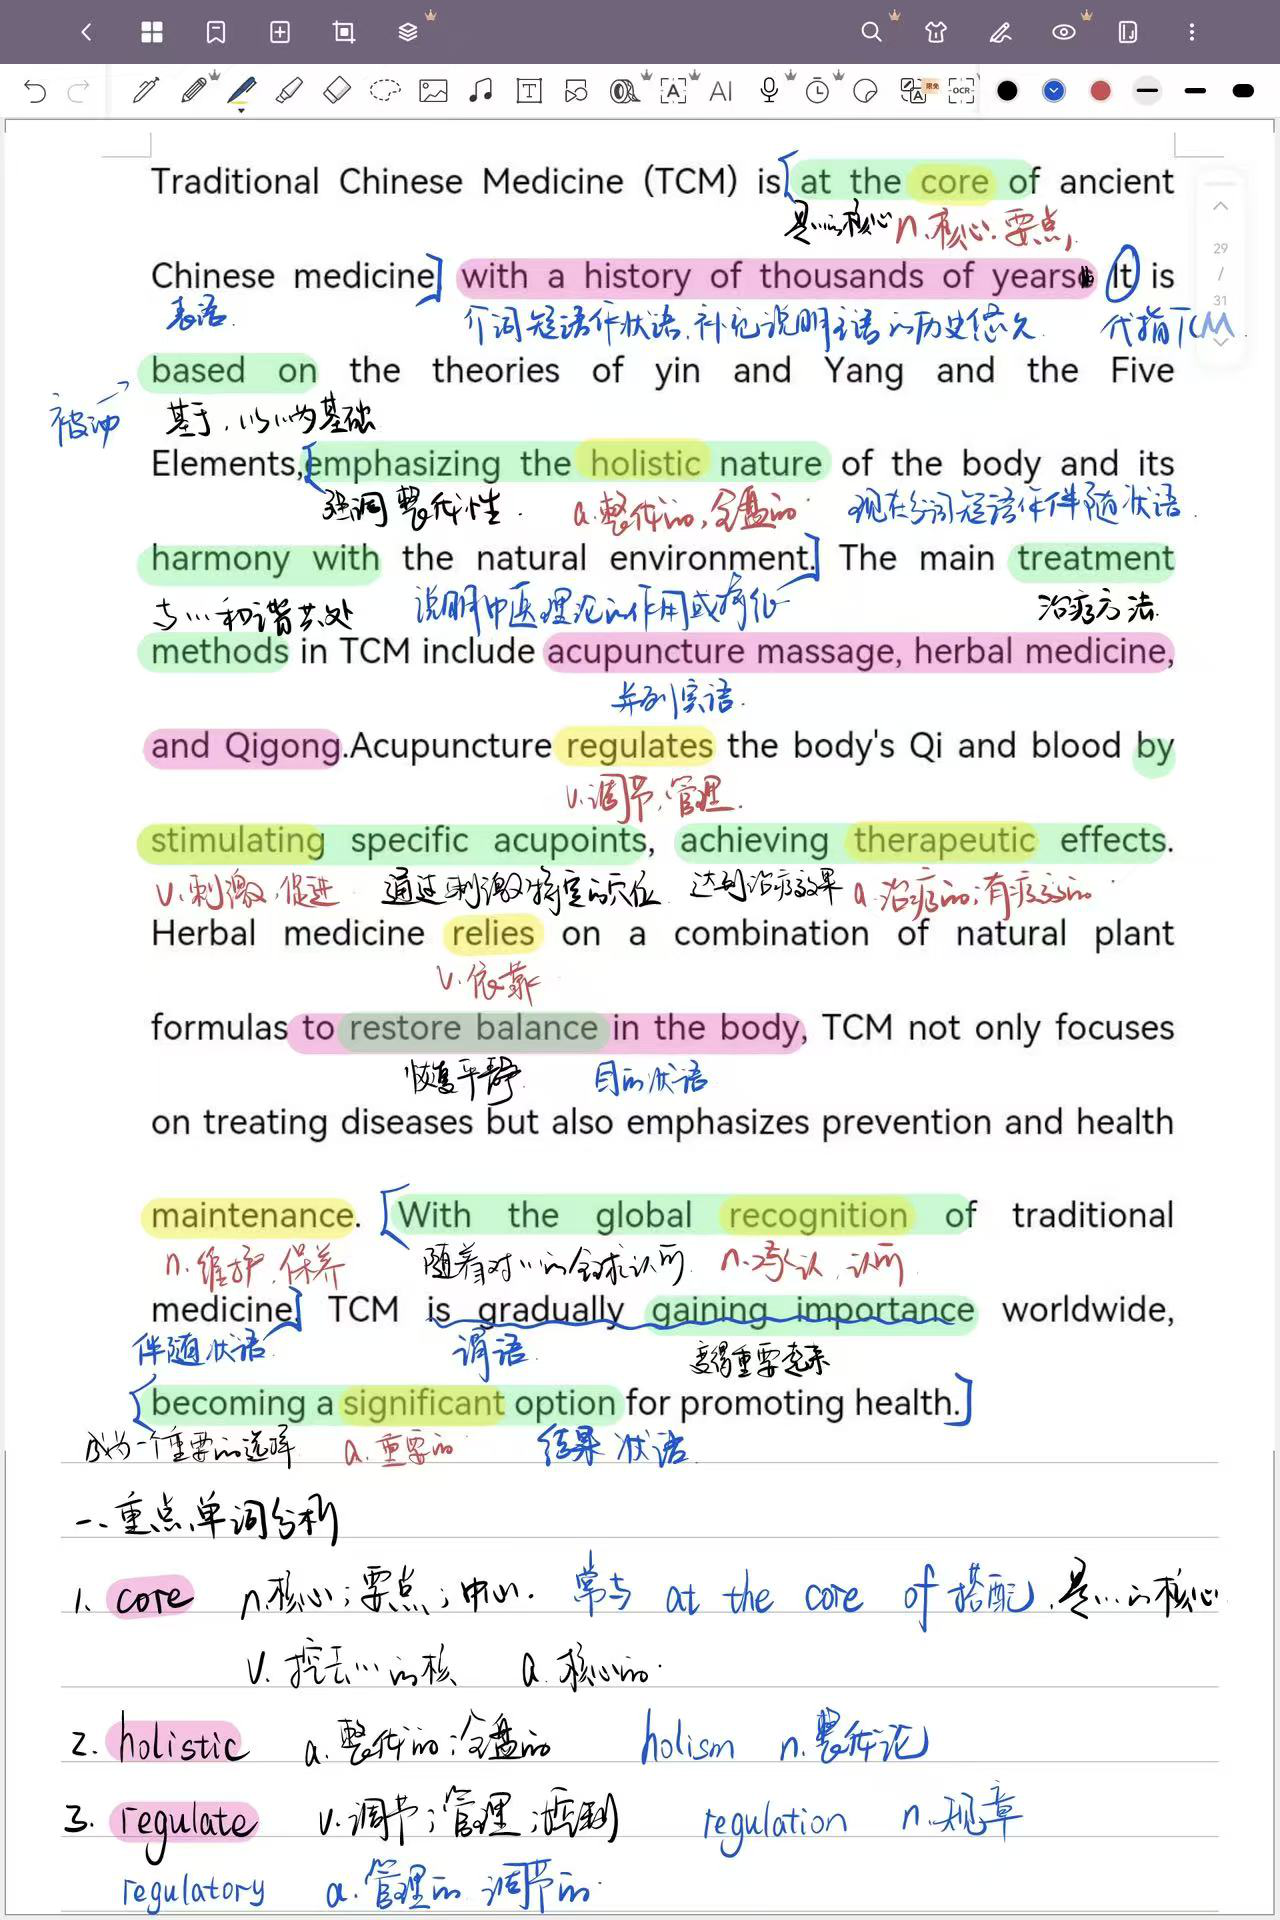 限免
AI
OCR
29
/
31
Traditional Chinese Medicine (TCM) is at the core of ancient
是…的核心 n.核心.要点,
Chinese medicine with a history of thousands of years. It is
表语. 介词短语作状语.补充说明主语的历史悠久. 代指TCM
based on the theories of yin and Yang and the Five
被动 基于,以…为基础
Elements,emphasizing the holistic nature of the body and its
强调整体性. a.整体的,全盘的. 现在分词短语作伴随状语.
harmony with the natural environment. The main treatment
与…和谐共处 说明中医理论的作用或特征 治疗方法.
methods in TCM include acupuncture massage, herbal medicine,
并列宾语.
and Qigong.Acupuncture regulates the body's Qi and blood by
v.调节,管理.
stimulating specific acupoints, achieving therapeutic effects.
v.刺激,促进 通过刺激特定的穴位 达到治疗效果 a.治疗的;有疗效的
Herbal medicine relies on a combination of natural plant
v.依靠
formulas to restore balance in the body, TCM not only focuses
恢复平静 目的状语
on treating diseases but also emphasizes prevention and health
maintenance. With the global recognition of traditional
n.维护,保养 随着对…的全球认可. n.承认,认可
medicine, TCM is gradually gaining importance worldwide,
伴随状语 谓语. 变得重要起来
becoming a significant option for promoting health.
成为一个重要的选择 a.重要的 结果状语.
一、重点单词分析
1. core n.核心;要点;中心. 常与 at the core of 搭配.是…的核心
v. 挖去…的核 a.核心的.
2. holistic a.整体的;全盘的 holism n.整体论
3. regulate v.调节;管理;控制 regulation n.规章
regulatory a.管理的 调节的.